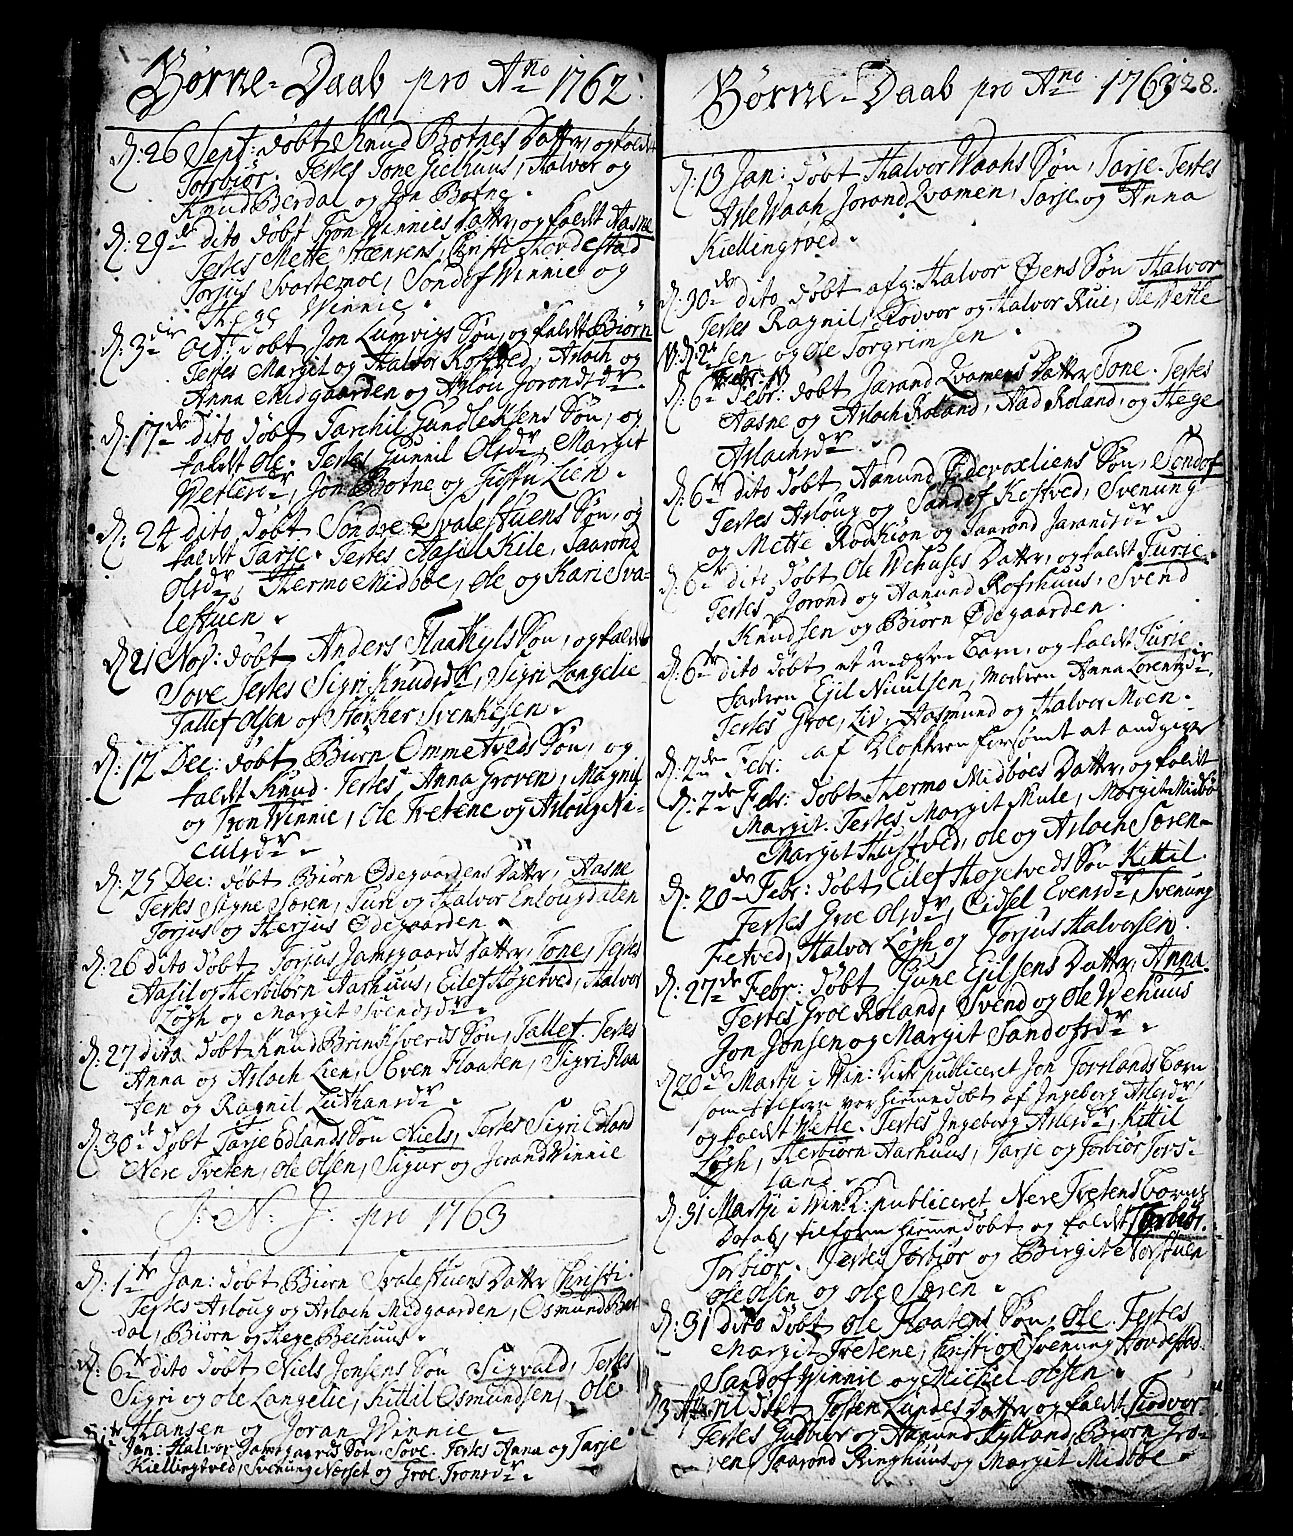 Børne-Daab pro Aⁿᵒ 1762.
D: 26 Sept: døbt Knud Botnes Datter, og kaldt
Torbiør. Testes Tone Gielhuus, Halvor og
Knud Berdal og Jon Botne.
D: 29de dito døbt Tron Winnies datter, og kaldt Aasne
Testes Mette Hansens, Christi Hovdestad
Torjus Svartemoe, Sondof Winnie og
Hege Winnie.
D: 3die Oct: døbt Jon Lumvigs Søn, og kaldt Biørn
Testes Margit og Halvor Kostved, Asloch og
Anna Midgaarden og Aslou Jorondsdr.
D: 17de dito døbt Tarchil Gundleksens Søn, og
kaldt Ole. Testes Gunnil Olsdr, Margit
Wetlesdr, Jon Botne og Lien.
D: 24 dito, døbt Søndre Svalestuens Søn, og
kaldt Tarje. Testes Aasil Kile, Taarond
Olsdr, Thermo Midboe, Ole og Kari Sva-
lestuen.
D: 21 Nov: døbt Anders Flaatkyls Søn, og kaldt
Sove Testes Sigri Knudsdr, Sigri Langelie
Tallef Olsen og Størker Svenkesen.
D: 12 Dec: døbt Biørn Ommetveds Søn, og
kaldt Knud. Testes Anna Groven, Magnil
og Tron Winnie, Ole Tvetene og Asloug Ni-
culsdr.
D: 25 Dec: døbt Biørn Ødegaardens Datter, Aasne
Testes Signe Søren, Turi og Halvor Enlougdalen
Torjus og Herjus Ødegaarden.
D: 26 dito døbt Torjus Jamsgaards Datter, Tone, Testes
Aasil og Herbiørn Aarhuus, Eilef Høgetved, Halvor
Løgh og Margit Svendsdr.
D: 27 dito døbt Knud Brinksverds Søn, Tallef. Testes
Anna og Asloch Lien, Even Flaaten, Sigri Flaa
ten og Ragnil Luthansdr.
D: 30de døbt Tarje Edlands Søn Niels, Testes Sigri Edland
Nere Tveten, Ole Olsen, Sigur og Jorand Winnie
J: N: J: pro 1763
D: 1te Jan: døbt Biørn Svalestuens Datter Christi.
Testes Asloug og Asloch Midgaarden, Osmund Ber
dal, Biørn og Hege Bechuus.
D: 6te dito døbt Niels Jonsens Søn Sigvald, Testes
Sigri og Ole Langelie, Kittil Osmundsen, Ole
Hansen og Joran Winnie.
Jan: Halvor Jamsgaards Søn, Sove. Testes Anna og Tarje
Kiellingtved, Svenung Nerset og Groe Tronsdr.
Børne-Daab pro Aⁿᵒ 1763 28.
D: 13 Jan: døbt Halvor Waahs Søn, Tarje. Testes
Asle Waah, Jorand Qvamen, Tarje og Anna
Kiellingtved.
D: 30de dito døbt afg: Halvor Øens Søn Halvor
Testes Ragnil, Flodvor og Halvor Rue, Ole Wetle
sen og Ole Torgrimsen.
D: 6te Febr: døbt Jarand Qvamens Datter Tone. Testes
Aasne og Asloch Roland, Aad Roland, og Hege
Aslachsdr.
D: 6te dito døbt Aanund Ødevoxliens Søn, Sondof
Testes Asloug og Sandof Kostved, Svenung
og Mette Rodkiøn og Jaarond Jarandsdr.
D: 6te dito døbt Ole Wehuses Datter, og kaldt Turje.
Testes Jorond og Aanund Rofshuus, Svend
Knudsen og Biørn Ødegaarden.
D: 6te dito døbt et uægte Barn, og kaldt Turje.
Faderen Ejil Niculsen, Moderen Anna Lorentsdr,
Testes Groe, Liv, Aasmund og Halvor Moen.
D: 2den Febr: af Klokkeren forsømt at andgive
D: 2de Febr: døbt Thermo Midboes Datter, og kaldt
Margit. Testes Margit Mule, Margit Midbø
Margit Hustved, Ole og Asloch Søren.
D: 20de Febr: døbt Eilef Høgetveds Søn Kittil.
Testes Groe Olsdr, Eidsel Evensdr, Svenung
Fetved, Halvor Løgh og Torjus Halvorsen.
D: 27de Febr: døbt Gune Ejilsens Datter, Anna.
Testes Groe Roland, Svend og Ole Wehuus
Jon Jonsen og Margit Sandofsdr.
D: 20de Martji i Win: Kirk publiceret Jon Torslands Barn
som tilforn var hiemmedøbt af Ingeborg Aslesdr
og kaldt Wetle. Testes Ingeborg Aslesdr, Kittil
Løgh, Herbiørn Aarhuus, Tarje og Torbiør Tors-
land.
D: 31 Martji i Win: K: publiceret Nere Tvetens Barns
Daab, tilforn hiemmedøbt og kaldt Torbiør.
Torbiør. Testes Torbiør og Birgit Norstuen
Ole Olsen og Ole Søren.
D: 31 dito døbt Ole Flaatens Søn, Ole. Testes
Margit Tvetene, Christi og Svenung Hovdestad
Sandof Winnie og Michel Olsen.
D: 3 April døbt Tosten Lundes Datter og kaldt Flodvor
Testes Gudbiør og Aanund Hylland, Biørn Gro-
ven, Taarond Ringhuus og Margit Midbøe